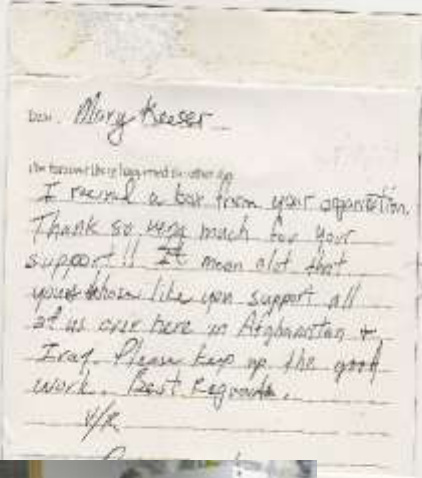 Dear, Mary Keeser
the other day
I received a box from your organization.
Thank so very much for your
support!! It mean alot that
like you support all
of us over here in Afghanistan +
Iraq. Please keep up the good
work. Best Regards,
V/R